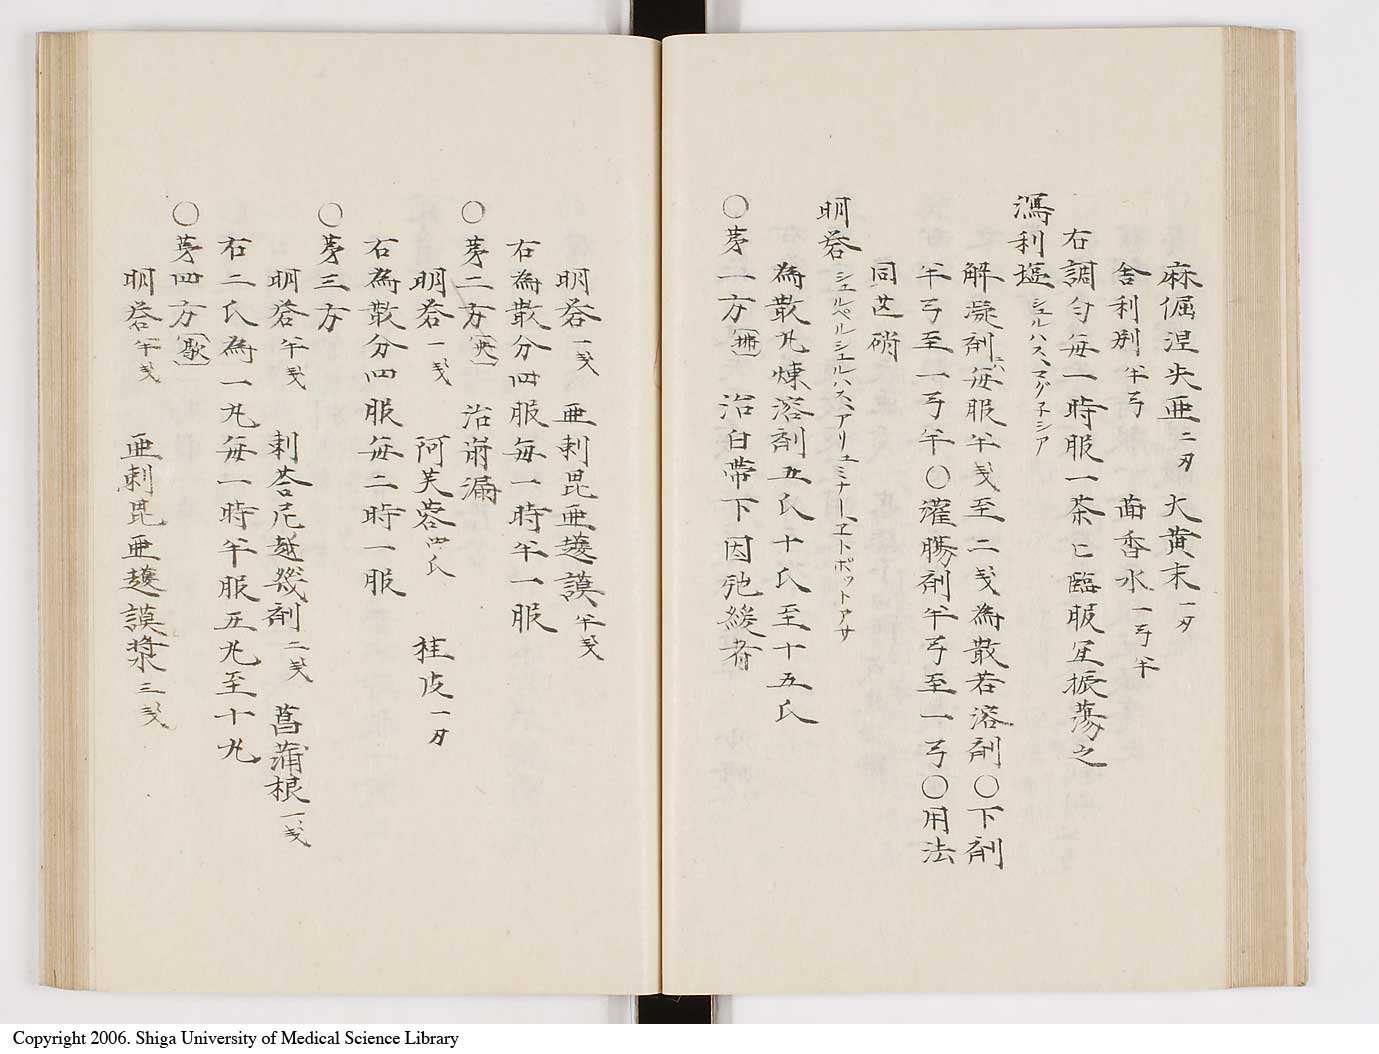 麻倔涅矢亜二刃　大黄末一刃
舎利別半弓　茴香水一弓半
右調匀毎一時服一茶匕臨服宜振蕩之
瀉利塩シュルハス、マグネシア
解凝剤ニハ毎服半戔至二戔為散若溶剤〇下剤
半弓至一弓半〇灌腸剤半弓至一弓〇用法
同芒硝
明礬シュペルシュルハス、アリュミナー、ヱトポットアサ
為散丸煉溶剤五氏十氏至十五氏
〇苐一方　治白帯下因弛緩者
明礬一戔　亜剌毘亜護謨半戔
右為散分四服毎一時半一服
〇苐二方　治崩漏
明礬一戔　阿芙蓉四氏　桂皮一刃
右為散分四服毎二時一服
〇苐三方
明礬半戔　剌荅尼越幾剤二戔　菖蒲根一戔
右二氏為一丸毎一時半服五丸至十丸
〇苐四方
明礬半戔　亜剌毘亜護謨漿三戔
Copyright 2006. Shiga University of Medical Science Library